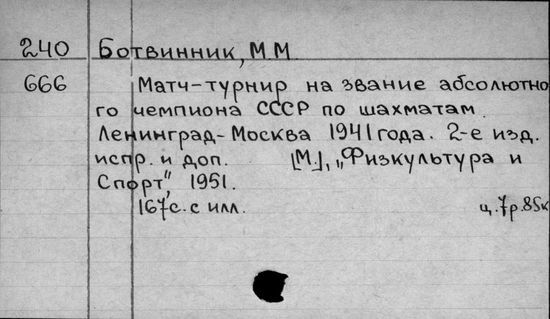 240 Ботвинник, М М
666 Матч-турнир на звание абсолютно
го чемпиона СССР по шахматам
Ленинград-Москва 1941 года. 2-е изд.
испр. и доп. [М.], „Физкультура и
Спорт", 1951.
167с. с илл. ц. 7р. 85к